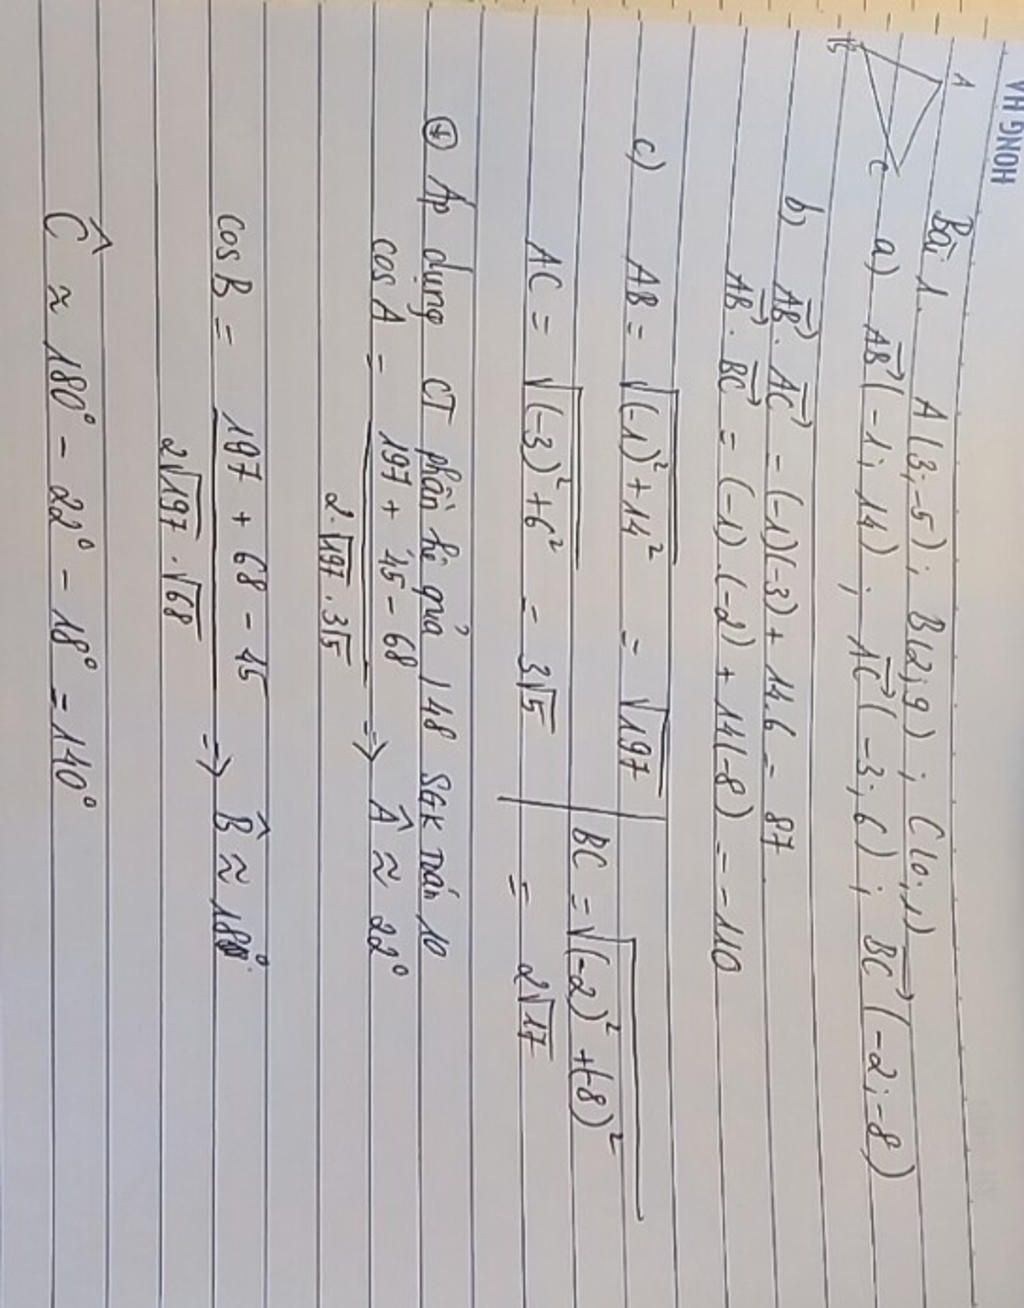 HONG HA
A
B
C
Bài 1. A(3;-5); B(2;9); C(0;1)
a) AB→(-1; 14); AC→(-3; 6); BC→(-2;-8)
b) AB→. AC→ = (-1)(-3) + 14.6 = 87
AB→. BC→ = (-1).(-2) + 14(-8) = -110
c) AB = √((-1)² + 14²) = √197
BC = √((-2)² + (-8)²)
AC = √((-3)² + 6²) = 3√5
= 2√17
⊕ Áp dụng CT phần hệ quả 148 SGK Toán 10
cos A = (197 + 45 - 68)/(2.√197.3√5) => Â ≈ 22°
cos B = (197 + 68 - 45)/(2√197.√68) => B̂ ≈ 18°
Ĉ ≈ 180° - 22° - 18° = 140°